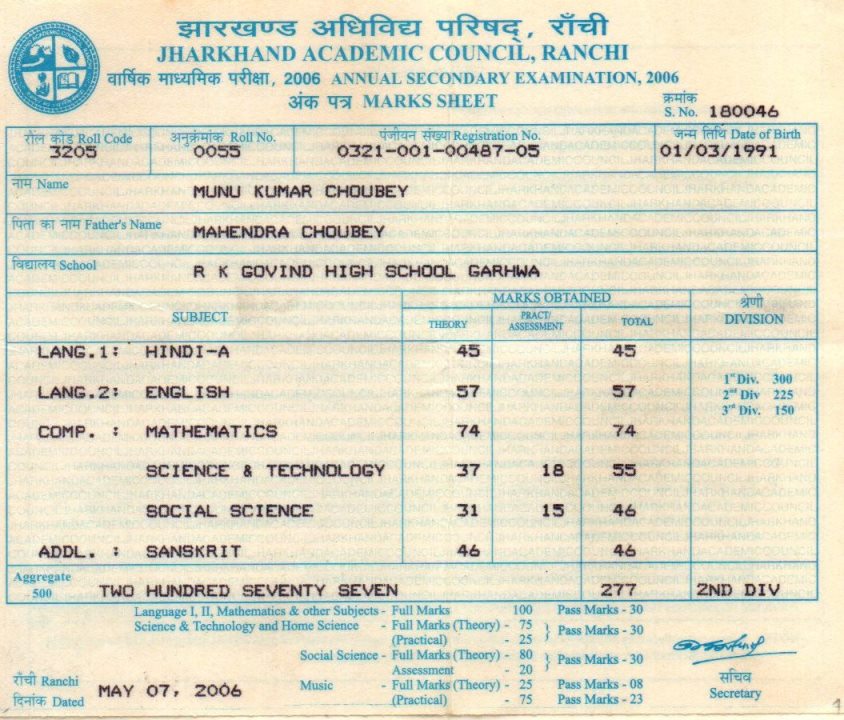 झारखण्ड अधिविद्य परिषद्, राँची
JHARKHAND ACADEMIC COUNCIL, RANCHI
वार्षिक माध्यमिक परीक्षा, 2006 ANNUAL SECONDARY EXAMINATION, 2006
अंक पत्र MARKS SHEET
क्रमांक
S. No. 180046
रौल कोड Roll Code अनुक्रंमांक Roll No. पंजीयन संख्या Registration No. जन्म तिथि Date of Birth
3205 0055 0321-001-00487-05 01/03/1991
नाम Name MUNU KUMAR CHOUBEY
पिता का नाम Father's Name MAHENDRA CHOUBEY
विद्यालय School R K GOVIND HIGH SCHOOL GARHWA
SUBJECT MARKS OBTAINED श्रेणी
THEORY PRACT/ ASSESSMENT TOTAL DIVISION
LANG.1: HINDI-A 45 45
1st Div. 300
LANG.2: ENGLISH 57 57 2nd Div 225
3rd Div. 150
COMP. : MATHEMATICS 74 74
SCIENCE & TECHNOLOGY 37 18 55
SOCIAL SCIENCE 31 15 46
ADDL. : SANSKRIT 46 46
Aggregate
-500 TWO HUNDRED SEVENTY SEVEN 277 2ND DIV
Language I, II, Mathematics & other Subjects - Full Marks 100 Pass Marks - 30
Science & Technology and Home Science - Full Marks (Theory) - 75 } Pass Marks - 30
(Practical) - 25
Social Science - Full Marks (Theory) - 80 } Pass Marks - 30
Assessment - 20
Music - Full Marks (Theory) - 25 Pass Marks - 08
(Practical) - 75 Pass Marks - 23
राँची Ranchi
दिनांक Dated MAY 07, 2006
सचिव
Secretary